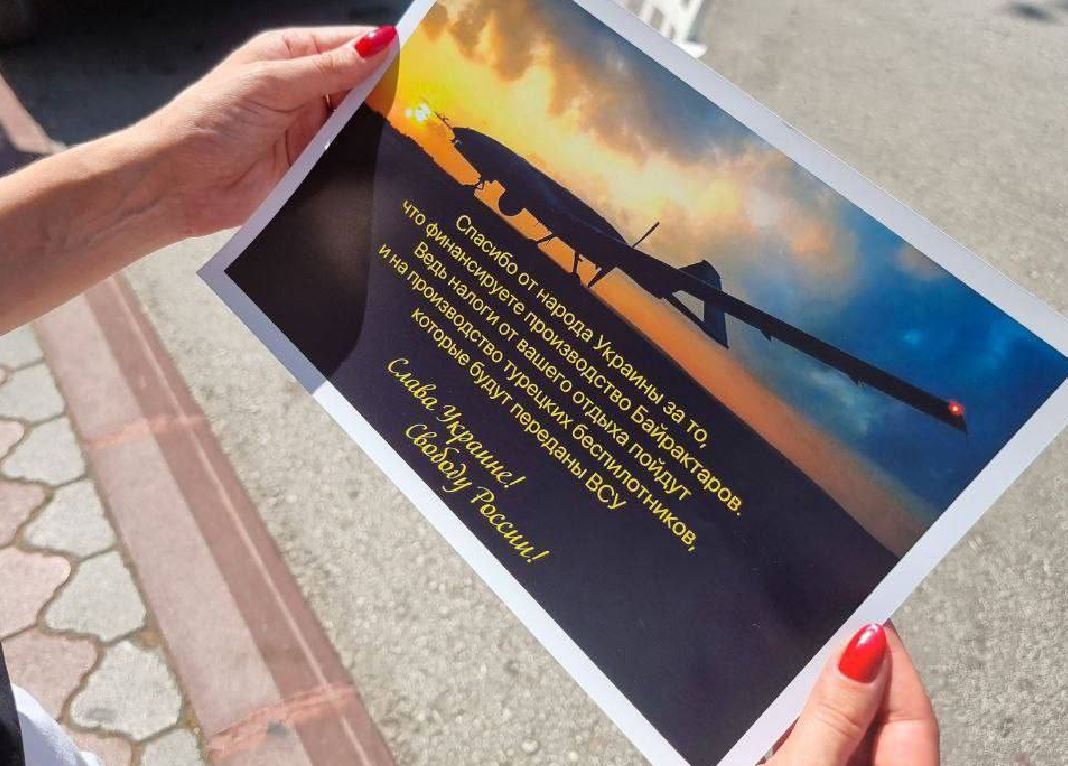 Спасибо от народа Украины за то,
что финансируете производство Байрактаров.
Ведь налоги от вашего отдыха пойдут
и на производство турецких беспилотников,
которые будут переданы ВСУ
Слава Украине!
Свободу России!